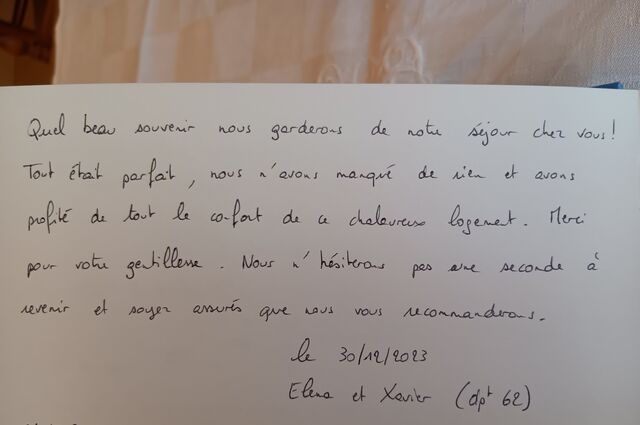 Quel beau souvenir nous garderons de notre séjour chez vous !
Tout était parfait, nous n'avons manqué de rien et avons
profité de tout le confort de ce chaleureux logement. Merci
pour votre gentillesse. Nous n'hésiterons pas une seconde à
revenir et soyez assurés que nous vous recommanderons.
le 30/12/2023
Elena et Xavier (dpt 62)